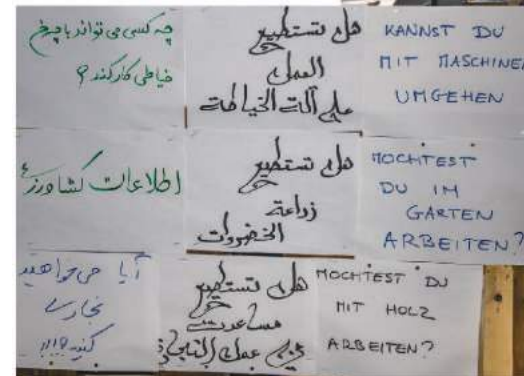 چه کسی می تواند با چرخ
خیاطی کار کند؟
هل تستطيع
العمل
على آلت الخياطة
KANNST DU
MIT MASCHINEN
UMGEHEN
اطلاعات کشاورزی
هل تستطيع
زراعة
الخضروات
MOCHTEST
DU IM
GARTEN
ARBEITEN?
آیا می خواهید
نجاری
کنید؟!!!
هل تستطيع
مساعدت
في عمل النجارة
MOCHTEST DU
MIT HOLZ
ARBEITEN?